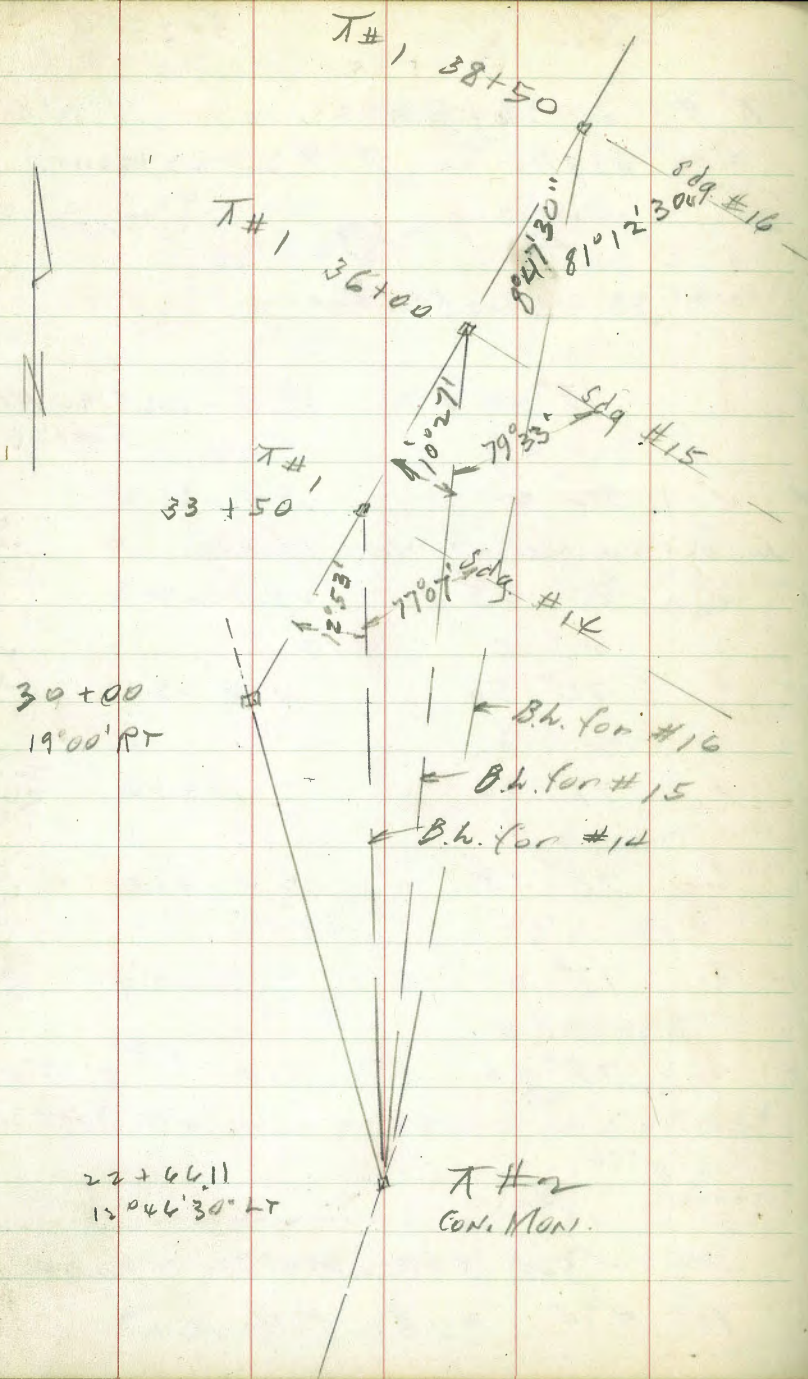 ⊼ #1 38+50
sdg #16
8°47'30"
81°12'30"
⊼ #1 36+00
N
sdg #15
10°27'
79°33'
⊼ #1
33+50
sdg. #14
12°53'
77°07'
30+00
19°00' RT
B.L. for #16
B.L. for #15
B.L. for #14
22+44.11
12°44'30" LT
⊼ #2
Con. Mon.